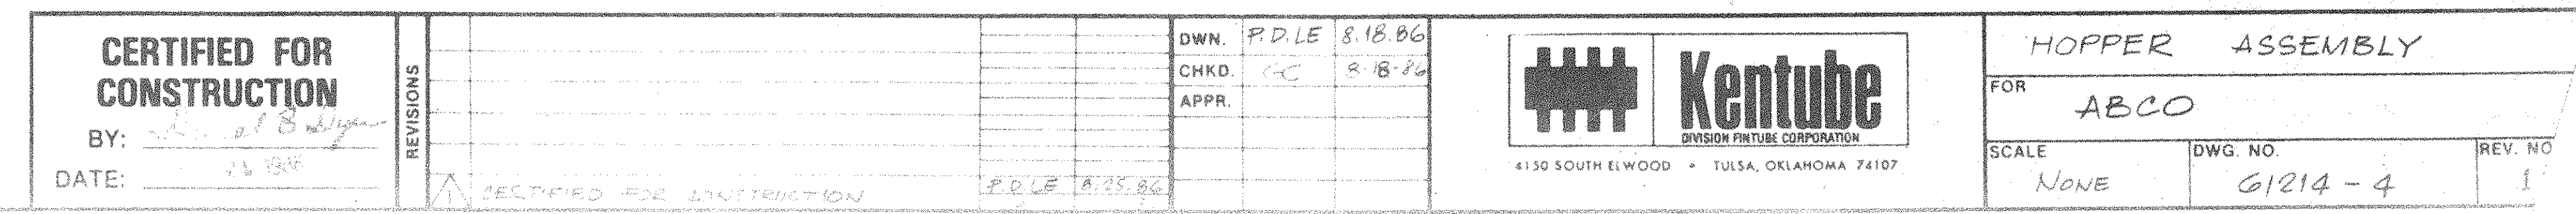 CERTIFIED FOR
CONSTRUCTION
BY:
DATE: 1986
REVISIONS
CERTIFIED FOR CONSTRUCTION P.D.LE 8.25.86
DWN. P.D.LE 8.18.86
CHKD. GC 8-18-86
APPR.
Kentube
DIVISION FINTUBE CORPORATION
4150 SOUTH ELWOOD • TULSA, OKLAHOMA 74107
HOPPER ASSEMBLY
FOR
ABCO
SCALE
NONE
DWG. NO.
61214-4
REV. NO
1